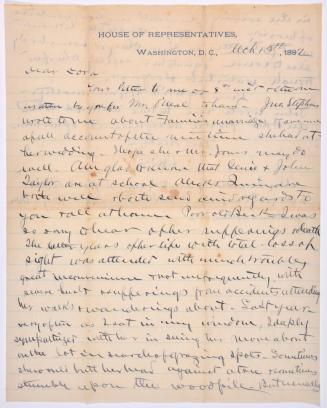 HOUSE OF REPRESENTATIVES,
WASHINGTON, D. C., 15th, 1882
Dear Dora
Your letter to me of 8th inst
written by you for Mr. O'Neal to hand. Jno. Stephens
wrote to me about Fannie's marriage & gave me
a full account of the nice time she had at
her wedding. I hope she & Mr. Jones may do
well. Am glad to know that Genie & John
Taylor are at school. Aleck & Quin are
both well & both send kind regards to
you & all at home. Poor old Beck. I was
so sorry to hear of her sufferings & death
The latter years of her life with total loss of
sight was attended with much trouble &
great inconvenience & not unfrequently with
severe hurts & sufferings from accidents attending
her walks & wanderings about. Last year
very often as I sat in my window, I deeply
sympathized with her in seeing her move about
on the lot in search of grazing spots. Sometimes
she would butt her head against a tree sometimes
stumble upon the woodpile But usually